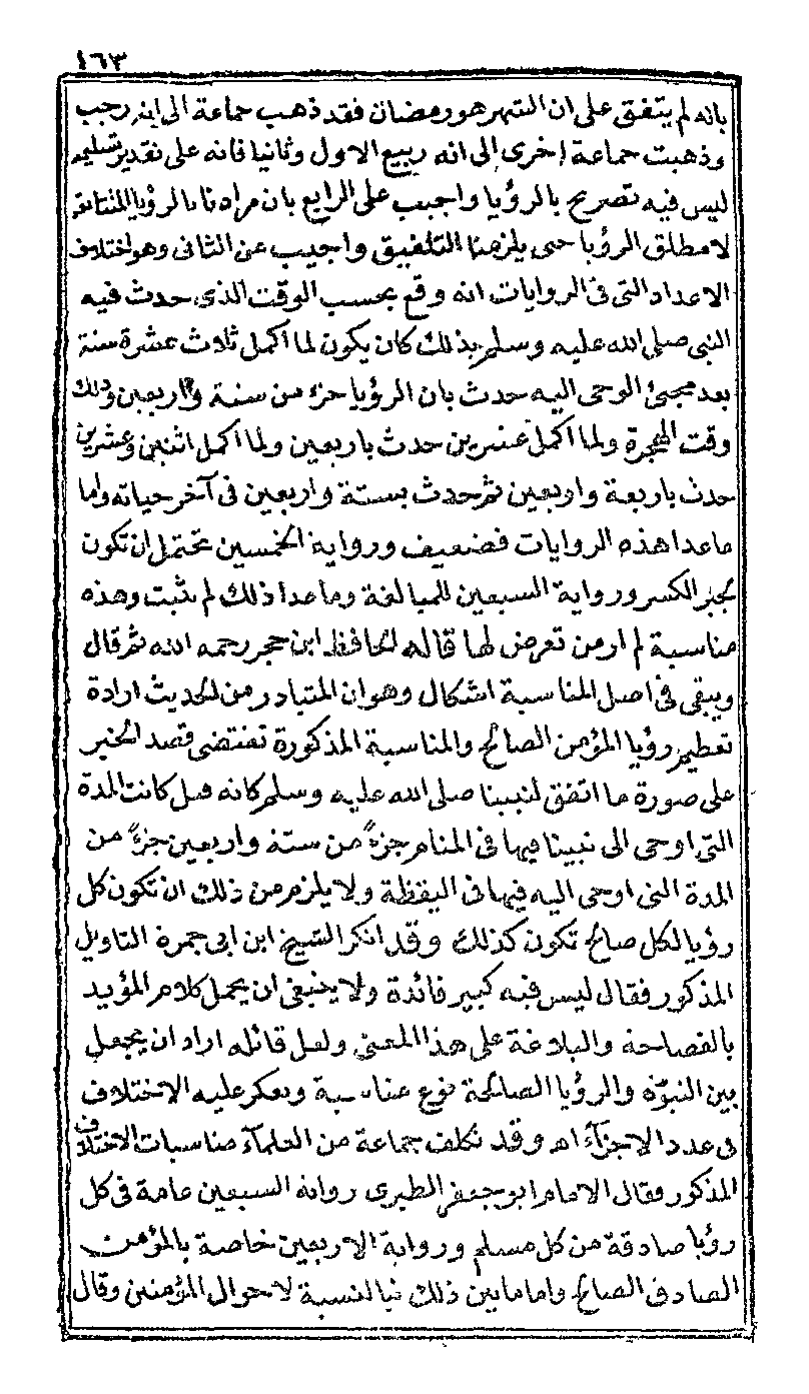 ١٦٣
بانه لم يتفق على ان الشهر هو رمضان فقد ذهب جماعة الى انه رجب
وذهبت جماعة اخرى الى انه ربيع الاول وثانيا فانه على تقدير تسليمه
ليس فيه تصريح بالرؤيا واجيب على الرابع بان مرادنا بالرؤيا المتتابعة
لا مطلق الرؤيا حتى يلزمنا التلفيق واجيب عن الثانى وهو اختلاف
الاعداد التى فى الروايات انه وقع بحسب الوقت الذى حدث فيه
النبى صلى الله عليه وسلم بذلك كان يكون لما اكمل ثلاث عشرة سنة
بعد مجيئ الوحى اليه حدث بان الرؤيا جزء من ستة واربعين وذلك
وقت الهجرة ولما اكمل عشرين حدث باربعين ولما اكمل اثنين وعشرين
حدث باربعة واربعين ثم حدث بستة واربعين فى آخر حياته واما
ما عدا هذه الروايات فضعيف ورواية الخمسين تحتمل ان تكون
لجبر الكسر ورواية السبعين للمبالغة وما عدا ذلك لم يثبت وهذه
مناسبة لم ار من تعرض لها قاله الحافظ ابن حجر رحمه الله ثم قال
ويبقى فى اصل المناسبة اشكال وهو ان المتبادر من الحديث ارادة
تعظيم رؤيا المؤمن الصالح والمناسبة المذكورة تقتضى قصد الخبر
على صورة ما اتفق لنبينا صلى الله عليه وسلم كانه قيل كانت المدة
التى اوحى الى نبينا فيها فى المنام جزءً من ستة واربعين جزءً من
المدة التى اوحى اليه فيها فى اليقظة ولا يلزم من ذلك ان تكون كل
رؤيا لكل صالح تكون كذلك وقد انكر الشيخ ابن ابى جمرة التاويل
المذكور فقال ليس فيه كبير فائدة ولا ينبغى ان يحمل كلام المؤيد
بالفصاحة والبلاغة على هذا المعنى ولعل قائله اراد ان يجعل
بين النبوّة والرؤيا الصالحة نوع مناسبة ويعكر عليه الاختلاف
فى عدد الاجزآء اه وقد تكلف جماعة من العلمآء مناسبات الاختلاف
المذكور فقال الامام ابو جعفر الطبرى رواية السبعين عامة فى كل
رؤيا صادقة من كل مسلم ورواية الاربعين خاصة بالمؤمن
الصادق الصالح واما ما بين ذلك فبالنسبة لاحوال المؤمنين وقال